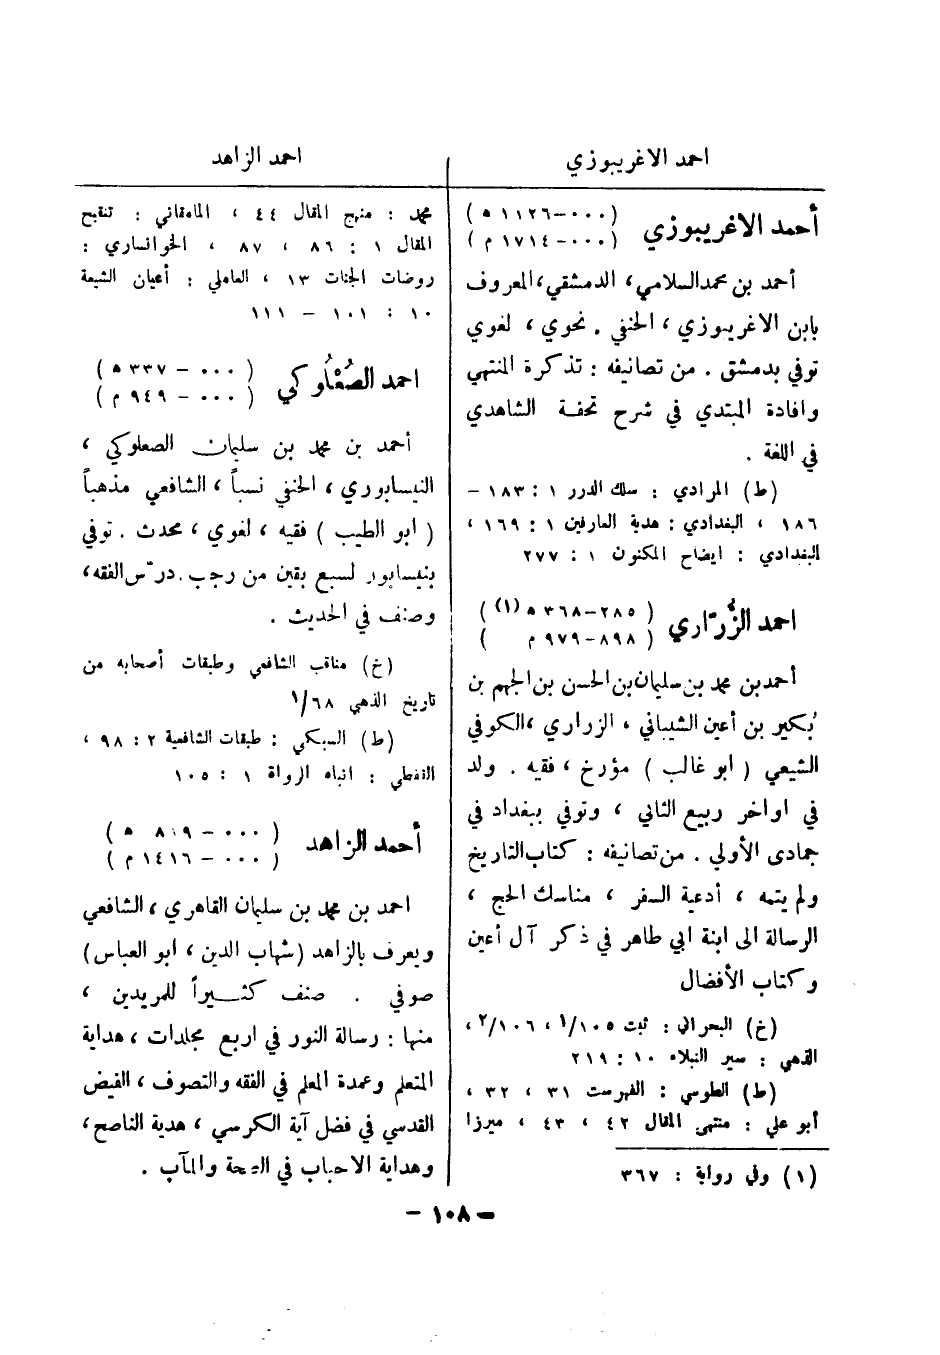 احمد الاغريبوزي
أحمد الاغريبوزي (٠٠٠-١١٢٦ ه)
(٠٠٠-١٧١٤ م)
أحمد بن محمد السلامي، الدمشقي، المعروف
بابن الاغريبوزي، الحنفي. نحوي، لغوي
توفي بدمشق. من تصانيفه: تذكرة المنتهي
وافادة المبتدي في شرح تحفة الشاهدي
في اللغة.
(ط) المرادي: سلك الدرر ١: ١٨٣-
١٨٦، البغدادي: هدية العارفين ١: ١٦٩،
البغدادي: ايضاح المكنون ١: ٢٧٧
احمد الزُّرَاري (٢٨٥-٣٦٨ ه (١))
(٨٩٨-٩٧٩ م)
أحمد بن محمد بن سليمان بن الحسن بن الجهم بن
بُكير بن أعين الشيباني، الزراري، الكوفي
الشيعي (ابو غالب) مؤرخ، فقيه. ولد
في اواخر ربيع الثاني، وتوفي ببغداد في
جمادى الأولي. من تصانيفه: كتاب التاريخ
ولم يتمه، أدعية السفر، مناسك الحج،
الرسالة الى ابنة ابي طاهر في ذكر آل أعين
وكتاب الأفضال
(خ) البحراني: ثبت ١/١٠٥، ٢/١٠٦،
الذهبي: سير النبلاء ١٠: ٢١٩
(ط) الطوسي: الفهرست ٣١، ٣٢،
أبو علي: منتهى المقال ٤٢، ٤٣، ميرزا
(١) وفي رواية: ٣٦٧
احمد الزاهد
محمد: منهج المقال ٤٤، المامقاني: تنقيح
المقال ١: ٨٦، ٨٧، الخوانساري:
روضات الجنات ١٣، العاملي: أعيان الشيعة
١٠: ١٠١ - ١١١
احمد الصُعْلُوكي (٠٠٠ - ٣٣٧ ه)
(٠٠٠ - ٩٤٩ م)
أحمد بن محمد بن سليمان الصعلوكي،
النيسابوري، الحنفي نسباً، الشافعي مذهباً
(أبو الطيب) فقيه، لغوي، محدث. توفي
بنيسابور لسبع بقين من رجب. درّس الفقه،
وصنف في الحديث.
(خ) مناقب الشافعي وطبقات أصحابه من
تاريخ الذهبي ١/٦٨
(ط) السبكي: طبقات الشافعية ٢: ٩٨،
القفطي: انباه الرواة ١: ١٠٥
أحمد الزاهد (٠٠٠ - ٨١٩ ه)
(٠٠٠ - ١٤١٦ م)
احمد بن محمد بن سليمان القاهري، الشافعي
ويعرف بالزاهد (شهاب الدين، ابو العباس)
صوفي. صنف كثيراً للمريدين،
منها: رسالة النور في اربع مجلدات، هداية
المتعلم وعمدة المعلم في الفقه والتصوف، الفيض
القدسي في فضل آية الكرسي، هدية الناصح،
وهداية الاحباب في الصحة والمآب.
- ١٠٨ -